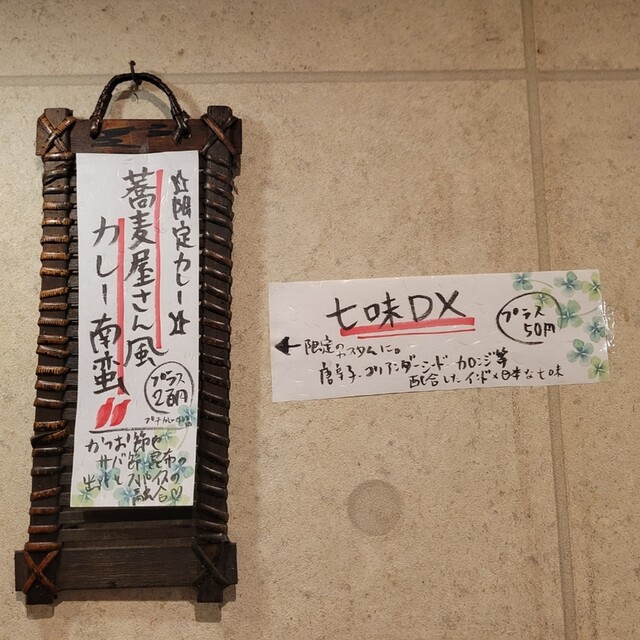 ☆限定カレー☆
蕎麦屋さん風
カレー南蛮
プラス
かつお節や
サバ節、昆布の
出汁とスパイスの
融合♡
七味DX
プラス
50円
限定のカスタムに。
唐辛子・コリアンダーシード カロンジ等
配合したインド×日本な七味